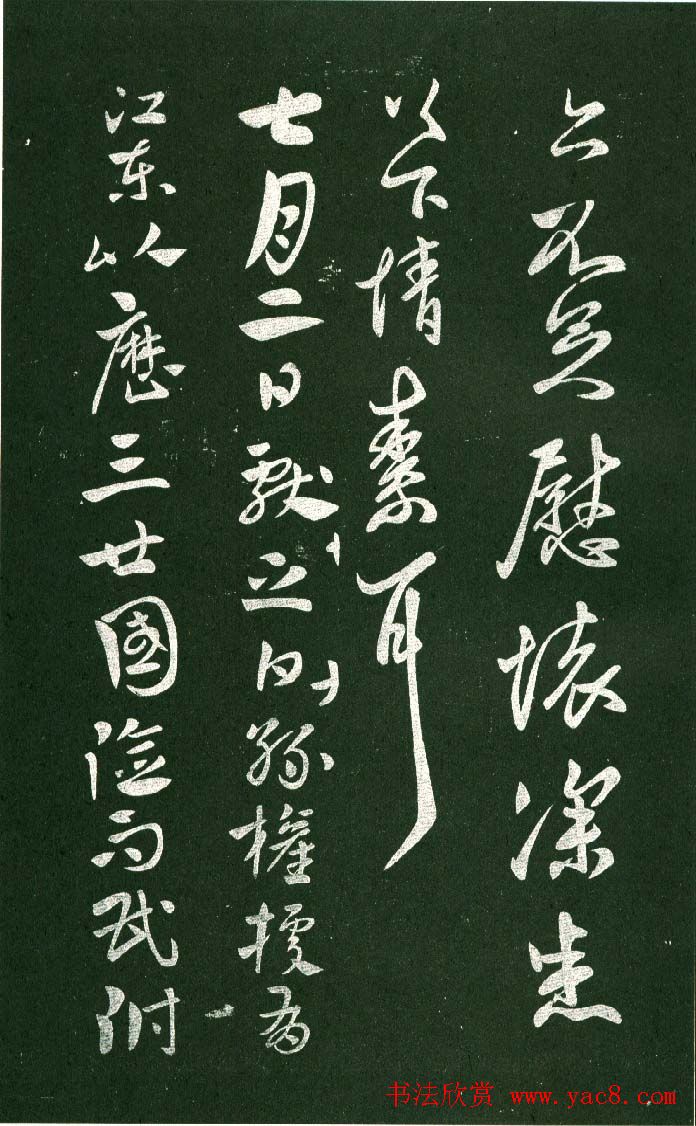 慰懷深
以下情素耳
七月二日獻之白孫權據有
江東以歷三世國險而民附
书法欣赏 www.yac8.com